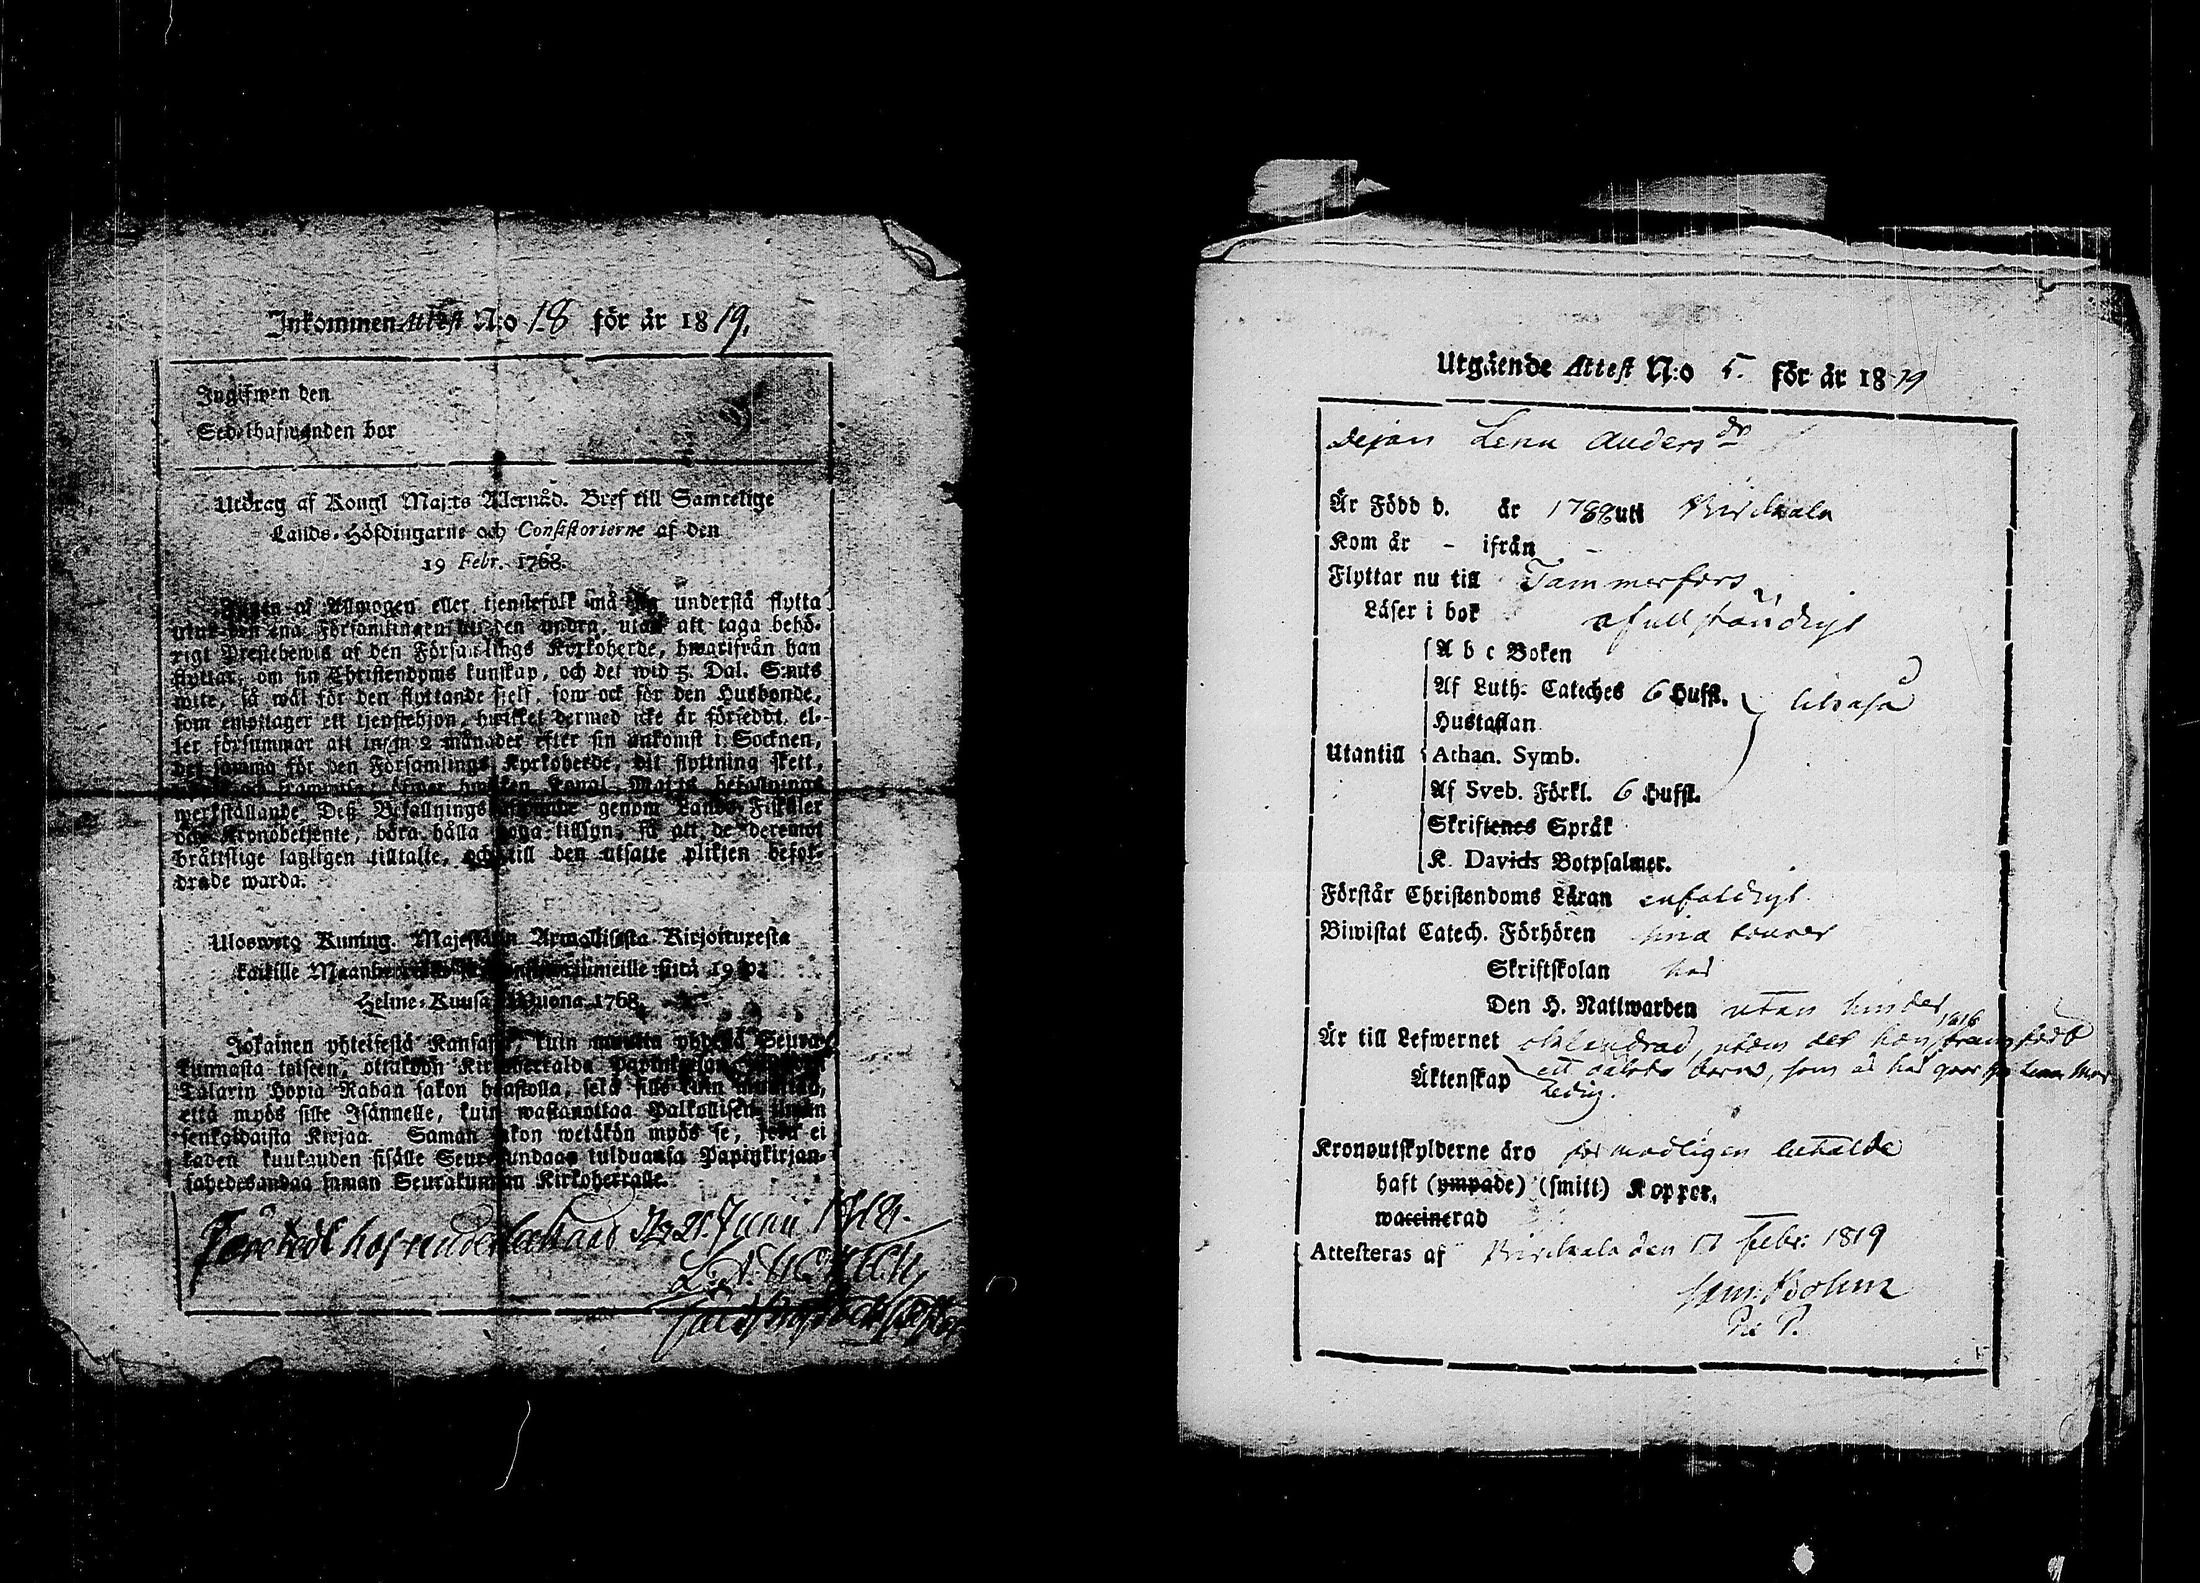 Inkommen Attest N:o 18 för år 1819.
Ingifwen den
Sedelhafwanden bor
Utdrag af Kongl Maj:ts Allernåd. Bref till Samtelige
Lands-Höfdingarne och Consistorierne af den
19 Febr. 1768.
Ingen af Allmogen eller tjenstefolk må understå flytta
utur den ena Församlingen til den andra, utan att taga behö-
rigt Prestebewis af den Församlings Kyrkoherde, hwarifrån han
flyttar, om sin Christendoms kunskap, och det wid 5. Dal. S:mts
wite, så wäl för den flyttande sjelf, som ock för den Husbonde,
som emottager ett tjenstehjon, hwilket dermed icke är försedt, el-
ler försummar att innom 2 månader efter sin ankomst i Socknen,
det samma för den Församlings Kyrkoherde, dit flyttning skett,
Kongl. Maj:ts befallnings
werkställande Deß Befallnings genom Lands Fiskaler
och Kronobetjente, böra hålla noga tillsyn, så att de deremot
bråttslige lagligen tilltalte, och till den utsatte plikten befor-
drade warda.
Ulosweto Kuning. Majestätin Armollisesta Kirjoituxesta
kaikille Maanherroille siitä 19 p:
Helme-Kuusa Wuona 1768.
Jokainen yhteisestä Kansasta, kuin muutta yhdestä Seura-
kunnasta toiseen, ottakoon Kirkkoherralda Papinkirjan,
Talarin Hopia Rahan sakon haastolla, sekä sille kuin muuttaa,
että myös sille Isännelle, kuin wastanottaa Palkollisen ilman
senkaldaista Kirjaa. Saman sakon wetäkön myös se, joka ei
kaden kuukauden sisälle Seurakundaan tulduansa Papinkirjan-
sa saman Seurakunnan Kirkoherralle.
hos undertecknad d. 21. Junii 1819.
Utgående Attest N:o 5. för år 1819
Pejan Lena Anders dr
Är Född d. år 1788 uti Birckala
Kom år - ifrån -
Flyttar nu till Tammerfors
Läser i bok ofullständigt
A b c Boken
Af Luth. Cateches 6 Hufst.
Hustaflan
Utantill Athan. Symb.
Af Sveb. Förkl. 6 Hufst.
Skriftenes Språk
K. Davids Botpsalmer.
Förstår Christendoms Läran enfaldigt
Biwistat Catech. Förhören sina tourer
Skriftskolan har
Den H. Nattwarden utan hinder
Är till Lefwernet oklandrad, utom det hon 1816 framfödt
Äktenskap ett oäkta barn, som
Ledig.
Kronoutskylderne äro förmodligen betalde
haft (ympade) (smitt) Koppor.
waccinerad
Attesteras af Birckala den 17 Febr: 1819
Sam: Bohm